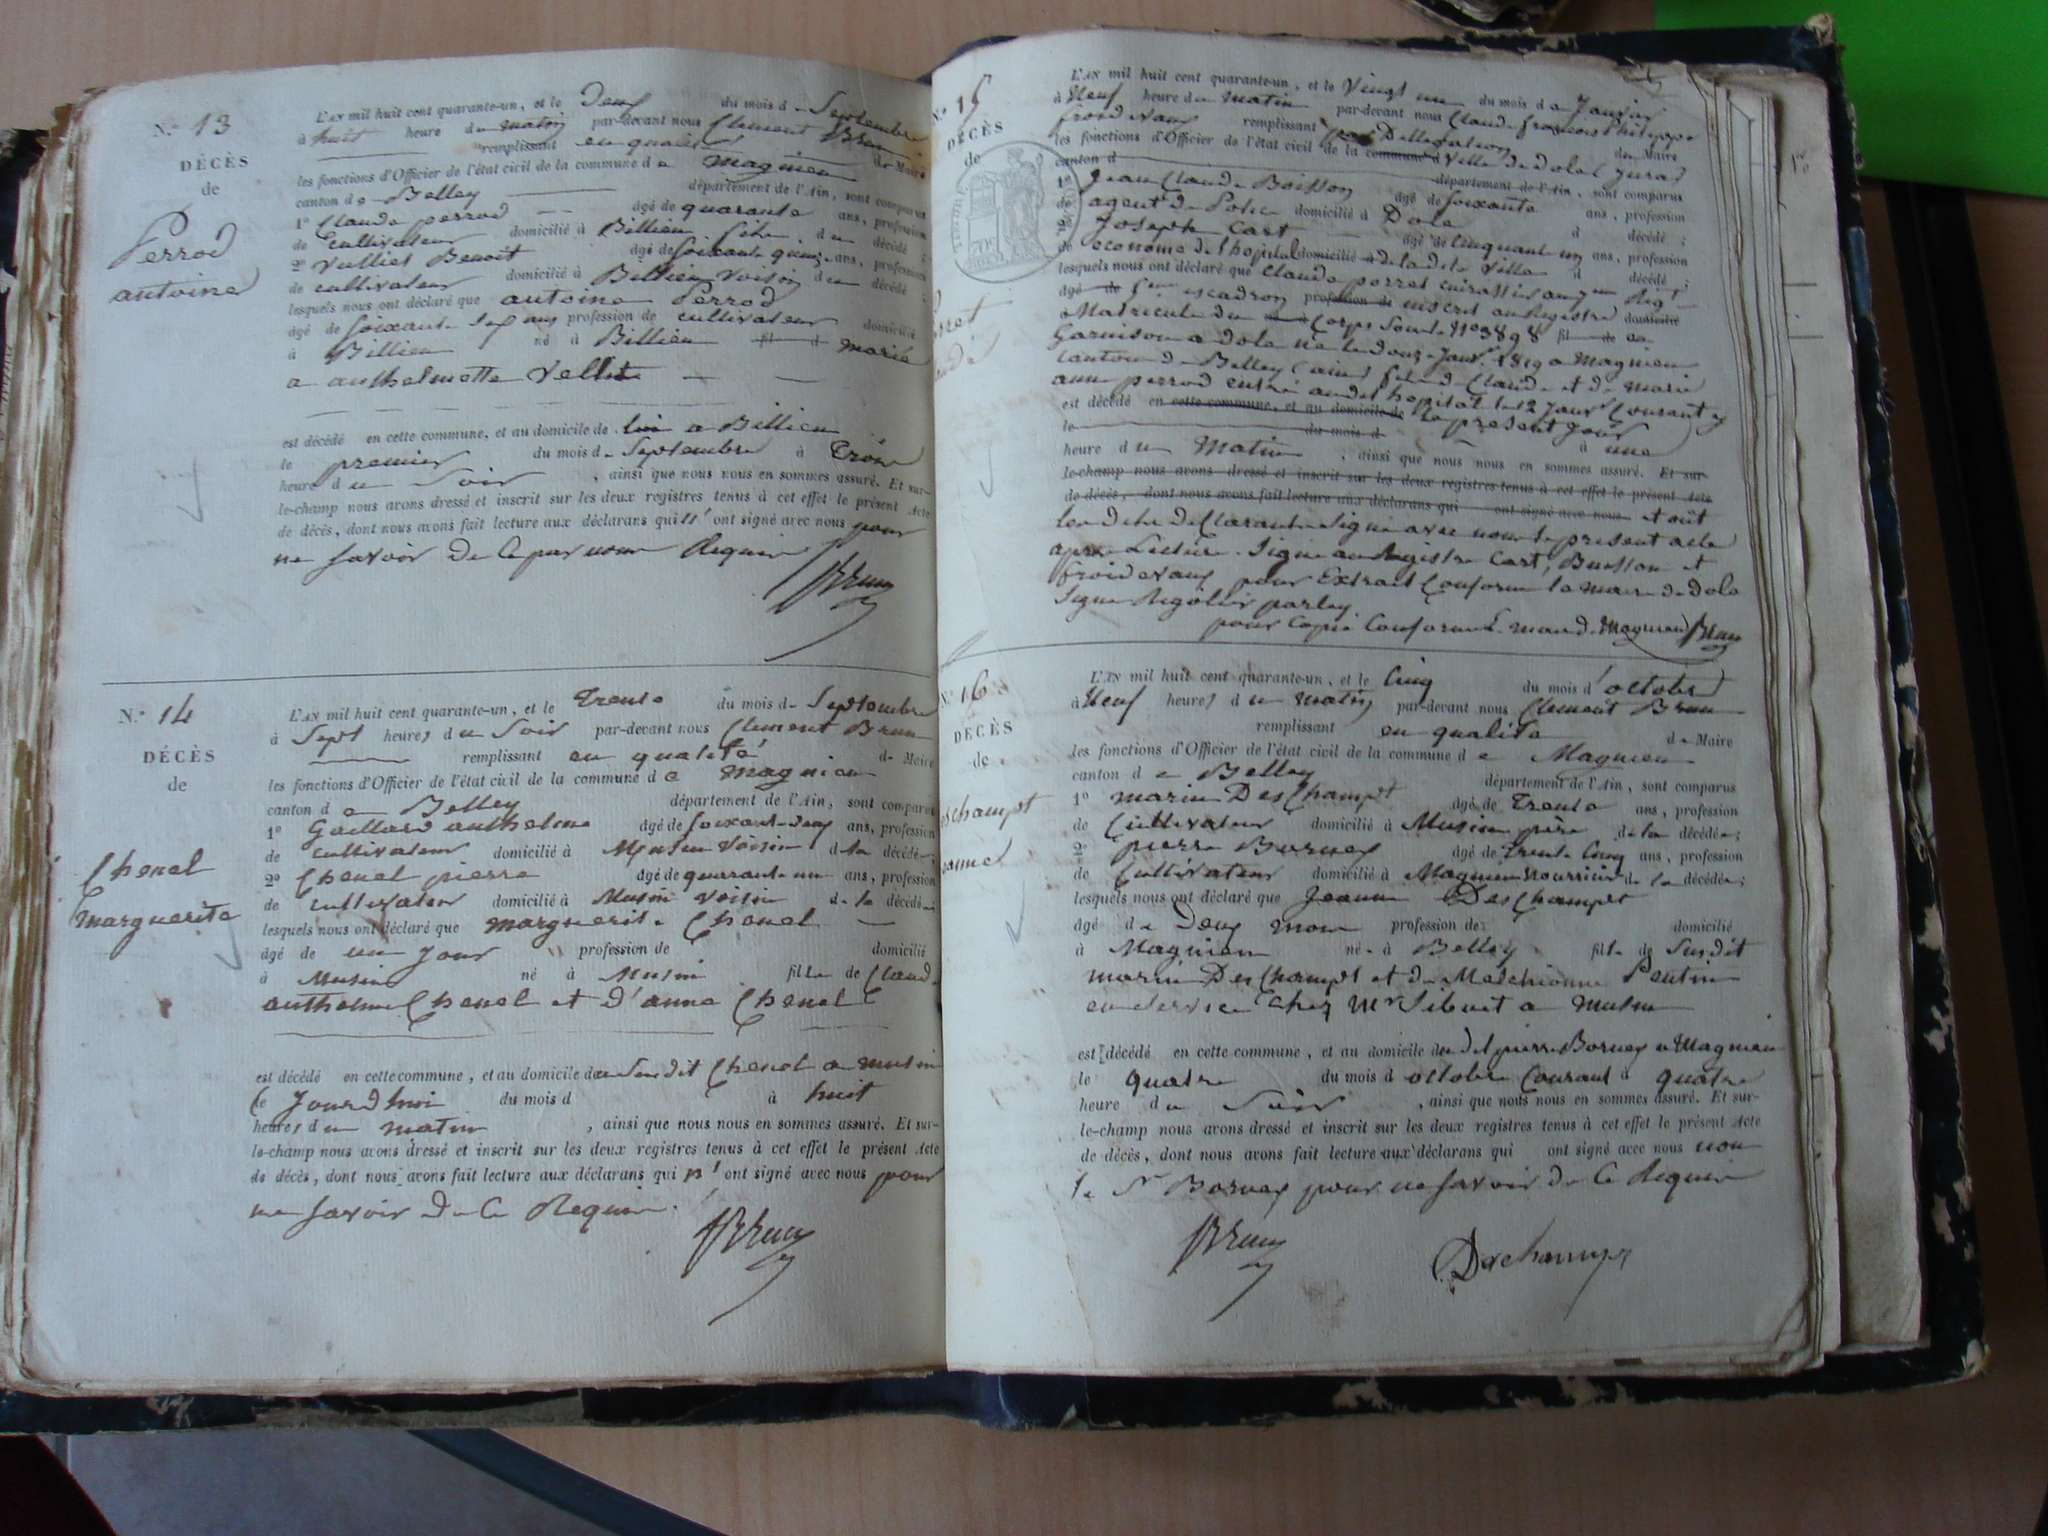 N.° 13
DÉCÈS
de
Perrod
antoine
L'AN mil huit cent quarante-un, et le Deux du mois de Septembre
à huit heure du matin par-devant nous Clement Brun
remplissant en qualité de Maire
les fonctions d'Officier de l'état civil de la commune de Magnieu
canton de Belley département de l'Ain, sont comparus
1° Claude perrod âgé de quarante ans, profession
de Cultivateur domicilié à Billieu fils du décédé;
2° Vulliet Benoit âgé de Soixante quinze ans, profession
de cultivateur domicilié à Billieu voisin du décédé;
lesquels nous ont déclaré que antoine Perrod
âgé de Soixante Sept ans profession de cultivateur domicilié
à Billieu né à Billieu fil d marié
a anthelmette Vellet
est décédé en cette commune, et au domicile de lui a Billieu
le premier du mois de Septembre à Trois
heure du Soir , ainsi que nous nous en sommes assuré. Et sur-
le-champ nous avons dressé et inscrit sur les deux registres tenus à cet effet le présent Acte
de décès, dont nous avons fait lecture aux déclarans qui n'ont signé avec nous pour
ne savoir De Ce par nous Requis
Brun
N.° 14
DÉCÈS
de
Chenel
marguerite
L'AN mil huit cent quarante-un, et le Trente du mois de Septembre
à Sept heures du Soir par-devant nous Clement Brun
remplissant en qualité de Maire
les fonctions d'Officier de l'état civil de la commune de magnieu
canton de Belley département de l'Ain, sont comparus
1° Gaillard anthelme âgé de soixante deux ans, profession
de cultivateur domicilié à Musin Voisin de la décédée;
2° Chenel pierre âgé de quarante un ans, profession
de cultivateur domicilié à Musin voisin de la décédée
lesquels nous ont déclaré que marguerite Chenel
âgé de un jour profession de domicilié
à Musin né à Musin fille de Claude
anthelme Chenel et d'anne Chenel
est décédé en cette commune, et au domicile de Susdit Chenel a musin
le Jourd'hui du mois d à huit
heures du matin , ainsi que nous nous en sommes assuré. Et sur-
le-champ nous avons dressé et inscrit sur les deux registres tenus à cet effet le présent Acte
de décès, dont nous avons fait lecture aux déclarans qui n'ont signé avec nous pour
ne savoir De Ce Requis.
Brun
N.° 15
DÉCÈS
de
L'AN mil huit cent quarante-un, et le Vingt un du mois de Janvier
à Neuf heure du matin par-devant nous Claude francois Philippe
froidevaux remplissant par Dellegation du Maire
les fonctions d'Officier de l'état civil de la commune d Ville de Dole (Jura)
canton d département de l'Ain, sont comparus
1° Jean Claude Boisson âgé de Soixante ans, profession
de agent de Police domicilié à Dole d décédé;
2° Joseph Cart âgé de Cinquante un ans, profession
de econome de l'hopital domicilié à de la dite Ville d décédé;
lesquels nous ont déclaré que Claude porret cuirassier au Reg
âgé de escadron profession de inscrit au Registre domicilié
Matricule du Corps Sous le N° 3898 fil de en
Garnison a Dole né le douze Janv. 1819 a Magnieu
canton de Belley (ain) fils de Claude et de marie
anne perrod entré au dit hopital le 12 Janv. Courant y
est décédé en cette commune, et au domicile de le present jour
le du mois d à une
heure du Matin , ainsi que nous nous en sommes assuré. Et sur-
le-champ nous avons dressé et inscrit sur les deux registres tenus à cet effet le présent Acte
de décès, dont nous avons fait lecture aux déclarans qui ont signé avec nous et ont
les dits Declarants Signé avec nous le present acte
apres Lecture. Signé au Registre Cart, Buisson et
froidevaux pour Extrait Conforme le maire de Dole
Signé
pour Copie Conforme L. maire de Magnieu Brun
N.° 16
DÉCÈS
de
L'AN mil huit cent quarante-un, et le Cinq du mois d'octobre
à Neuf heures du matin par-devant nous Clement Brun
remplissant en qualité de Maire
les fonctions d'Officier de l'état civil de la commune de Magnieu
canton de Belley département de l'Ain, sont comparus
1° marin DesChampt âgé de Trente ans, profession
de Cultivateur domicilié à Musin père de la décédée;
2° pierre Bornex âgé de trente Cinq ans, profession
de Cultivateur domicilié à Magnieu Nourricier de la décédée;
lesquels nous ont déclaré que Jeanne DesChampt
âgé de Deux mois profession de domicilié
à Magnieu né à Belley fille de Susdit
marin DesChampt et de Melchionne
en service Chez Mr Sibuet a musin
est décédé en cette commune, et au domicile du dit pierre Bornex a Magnieu
le quatre du mois d octobre Courant à quatre
heure du Soir , ainsi que nous nous en sommes assuré. Et sur-
le-champ nous avons dressé et inscrit sur les deux registres tenus à cet effet le présent Acte
de décès, dont nous avons fait lecture aux déclarans qui ont signé avec nous non
le Sr Bornex pour ne savoir de Ce Requis
Brun
Deschampt